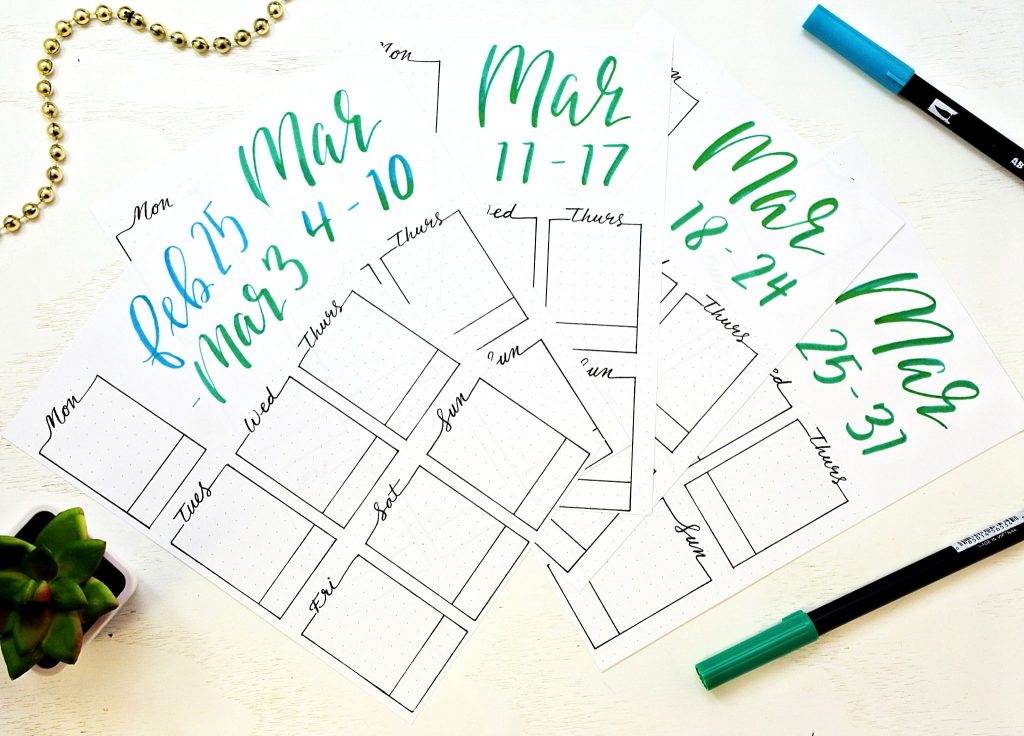 Feb 25
- Mar 3
Mon
Tues
Wed
Thurs
Fri
Sat
Sun
Mar
4 - 10
Mon
Thurs
Sun
Mar
11 - 17
Mon
Thurs
Sun
Mar
18 - 24
Thurs
Mar
25 - 31
Thurs
Sun